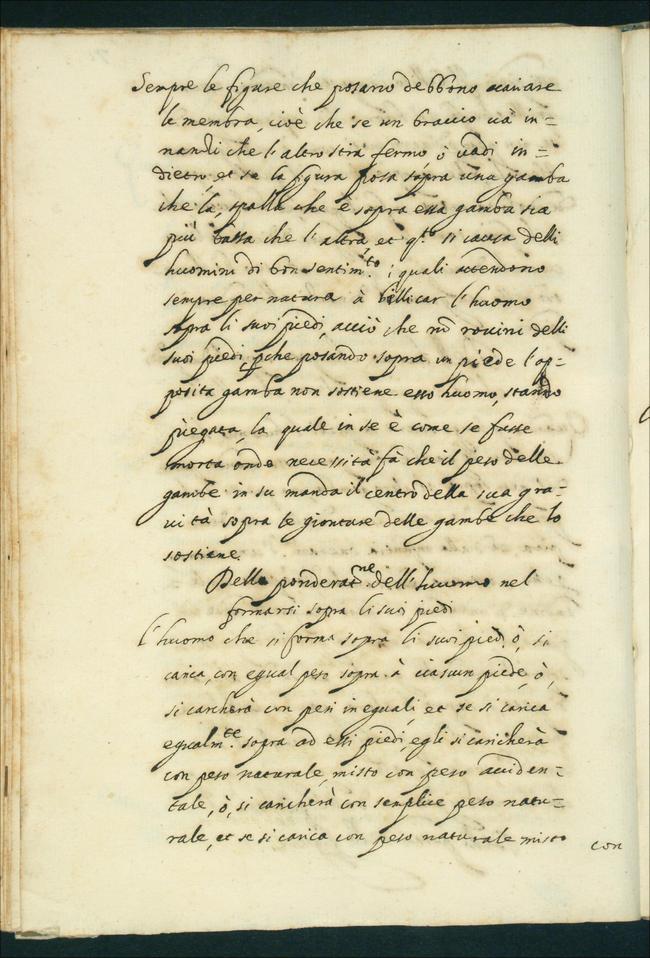 Sempre le figure che posano debbono variare
le membra, cioè che se un braccio và in=
nandi che l'altro stia fermo, ò vadi in=
dietro, et se la figura posa sopra una gamba
che la, spalla che è sopra essa gamba sia
più bassa che l'altra et q.to si causa delli
huomini di bon sentim.to i quali attendono
sempre per natura à billicar l'huomo
sopra li suoi piedi, acciò che nõ rovini delli
suoi piedi, pche posando sopra un piede l'op=
posita gamba non sostiene esso huomo, stando
piegata, la quale in se è come se fusse
morta onde necessità fà che il peso delle
gambe in su manda il centro della sua gra=
uità sopra le gionture delle gambe che lo
sostiene.
Della ponderat.ne dell'huomo nel
formarsi sopra li suoi piedi
l'huomo che si forma sopra li suoi piedi ò, si
carica, con egual peso sopra à ciascun piede, ò,
si carcherà con pesi ineguali, et se si carica
egualm.te sopra ad essi piedi, egli si caricherà
con peso naturale, misto con peso acciden=
tale, ò, si caricherà con semplice peso natu=
rale, et se si carica con peso naturale misto
con